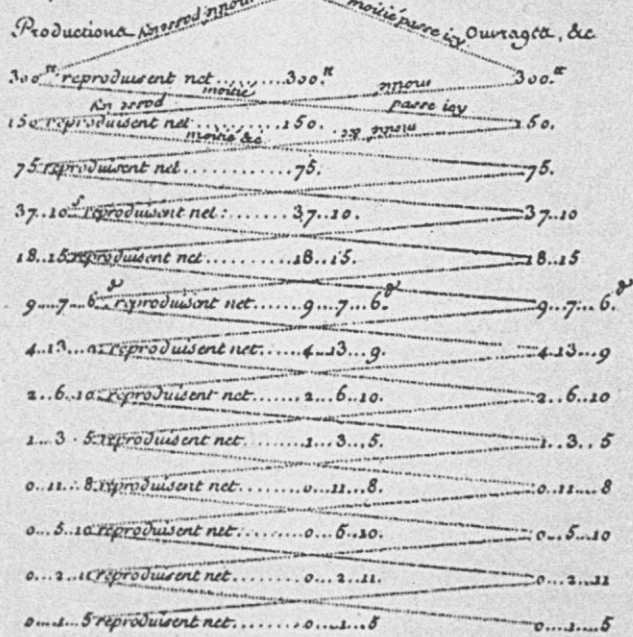 moitié passe icy moitié passe icy
Productions Ouvrages, &c
300.tt reproduisent net......300.tt 300.tt
moitié moitié
passe icy passe icy
150 reproduisent net........150. 150.
moitié &c moitié &c
75 reproduisent net...........75. 75.
37..10.s reproduisent net.......37..10. 37..10
18..15 reproduisent net........18..15. 18..15
9...7...6.d reproduisent net....9...7...6.d 9...7...6.d
4..13...9 reproduisent net....4..13...9. 4..13...9
2..6..10 reproduisent net.....2...6..10. 2..6..10
1...3..5 reproduisent net......1...3...5. 1...3...5
0..11...8 reproduisent net......0...11...8. 0...11...8
0...5..10 reproduisent net......0...5..10. 0...5..10
0...2...11 reproduisent net......0...2...11. 0...2...11
0...1...5 reproduisent net......0...1...5 0...1...5